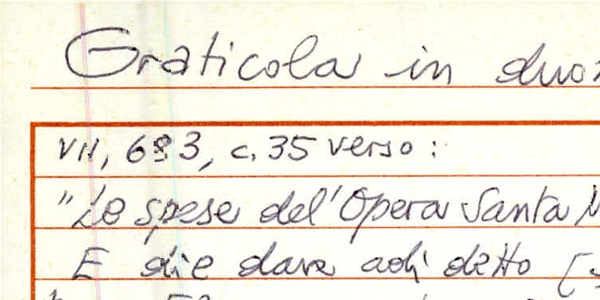 Graticola in duo
VII, 693, c. 35 verso:
"Le spese del'Opera Santa M
E die dare adì detto [